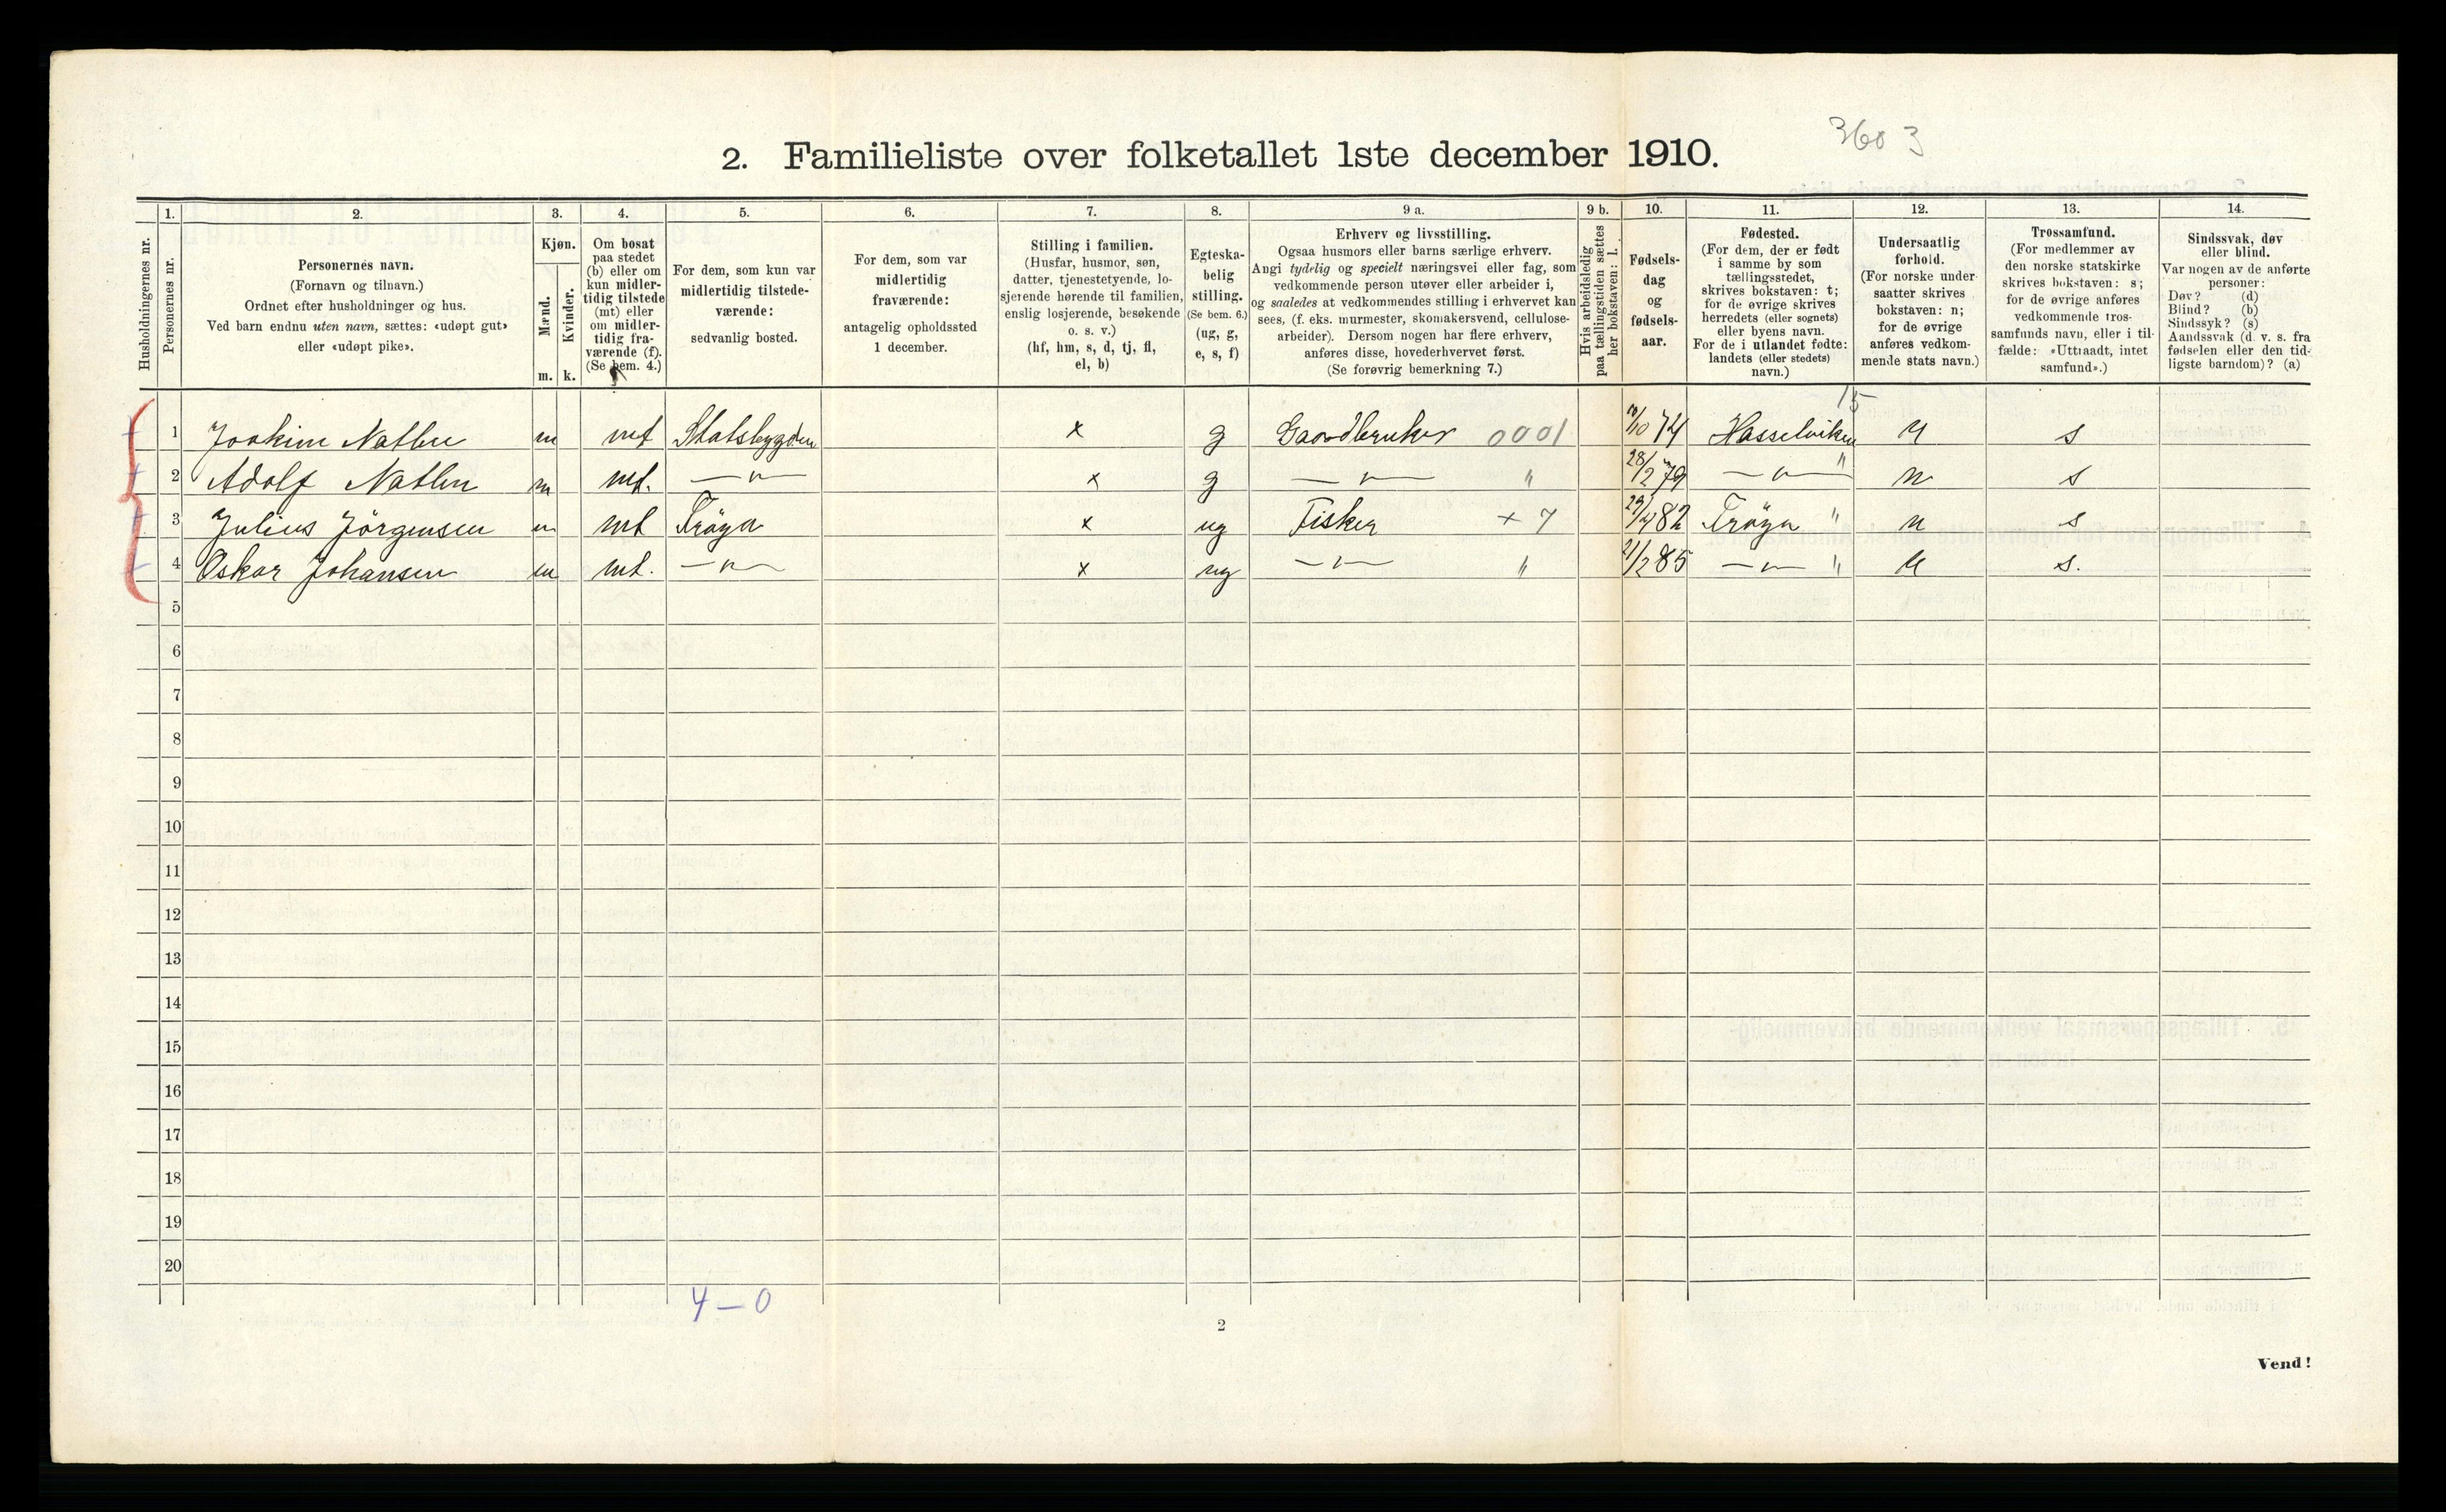 3603
2. Familieliste over folketallet 1ste december 1910.
Husholdningernes nr.
1.
Personernes nr.
2.
Personernes navn.
(Fornavn og tilnavn.)
Ordnet efter husholdninger og hus.
Ved barn endnu uten navn, sættes: «udøpt gut»
eller «udøpt pike».
3.
Kjøn.
Mænd.
Kvinder.
m. k.
4.
Om bosat
paa stedet
(b) eller om
kun midler-
tidig tilstede
(mt) eller
om midler-
tidig fra-
værende (f).
(Se bem. 4.)
5.
For dem, som kun var
midlertidig tilstede-
værende:
sedvanlig bosted.
6.
For dem, som var
midlertidig
fraværende:
antagelig opholdssted
1 december.
7.
Stilling i familien.
(Husfar, husmor, søn,
datter, tjenestetyende, lo-
sjerende hørende til familien,
enslig losjerende, besøkende
o. s. v.)
(hf, hm, s, d, tj, fl,
el, b)
8.
Egteska-
belig
stilling.
(Se bem. 6.)
(ug, g,
e, s, f)
9 a.
Erhverv og livsstilling.
Ogsaa husmors eller barns særlige erhverv.
Angi tydelig og specielt næringsvei eller fag, som
vedkommende person utøver eller arbeider i,
og saaledes at vedkommendes stilling i erhvervet kan
sees, (f. eks. murmester, skomakersvend, cellulose-
arbeider). Dersom nogen har flere erhverv,
anføres disse, hovederhvervet først.
(Se forøvrig bemerkning 7.)
9 b.
Hvis arbeidsledig
paa tællingstiden sættes
her bokstaven: l.
10.
Fødsels-
dag
og
fødsels-
aar.
11.
Fødested.
(For dem, der er født
i samme by som
tællingsstedet,
skrives bokstaven: t;
for de øvrige skrives
herredets (eller sognets)
eller byens navn.
For de i utlandet fødte:
landets (eller stedets)
navn.)
12.
Undersaatlig
forhold.
(For norske under-
saatter skrives
bokstaven: n;
for de øvrige
anføres vedkom-
mende stats navn.)
13.
Trossamfund.
(For medlemmer av
den norske statskirke
skrives bokstaven: s;
for de øvrige anføres
vedkommende tros-
samfunds navn, eller i til-
fælde: «Uttraadt, intet
samfund».)
14.
Sindssvak, døv
eller blind.
Var nogen av de anførte
personer:
Døv? (d)
Blind? (b)
Sindssyk? (s)
Aandssvak (d. v. s. fra
fødselen eller den tid-
ligste barndom)? (a)
15
1 Joakim m mt Statsbygden x g Gaardbruker 0001 10/10 74 Hasselviken n s
2 Adolf m mt. —"— x g —"— " 28/2 79 —"— " n s
3 Julius Jörgensen m mt Fröya x ug Fisker + 7 29/4 82 Fröya " n s
4 Oskar Johansen m mt. —"— x ug —"— " 21/2 85 —"— " n s.
5
6
7
8
9
10
11
12
13
14
15
16
17
18
19
20
4 — 0
2
Vend!